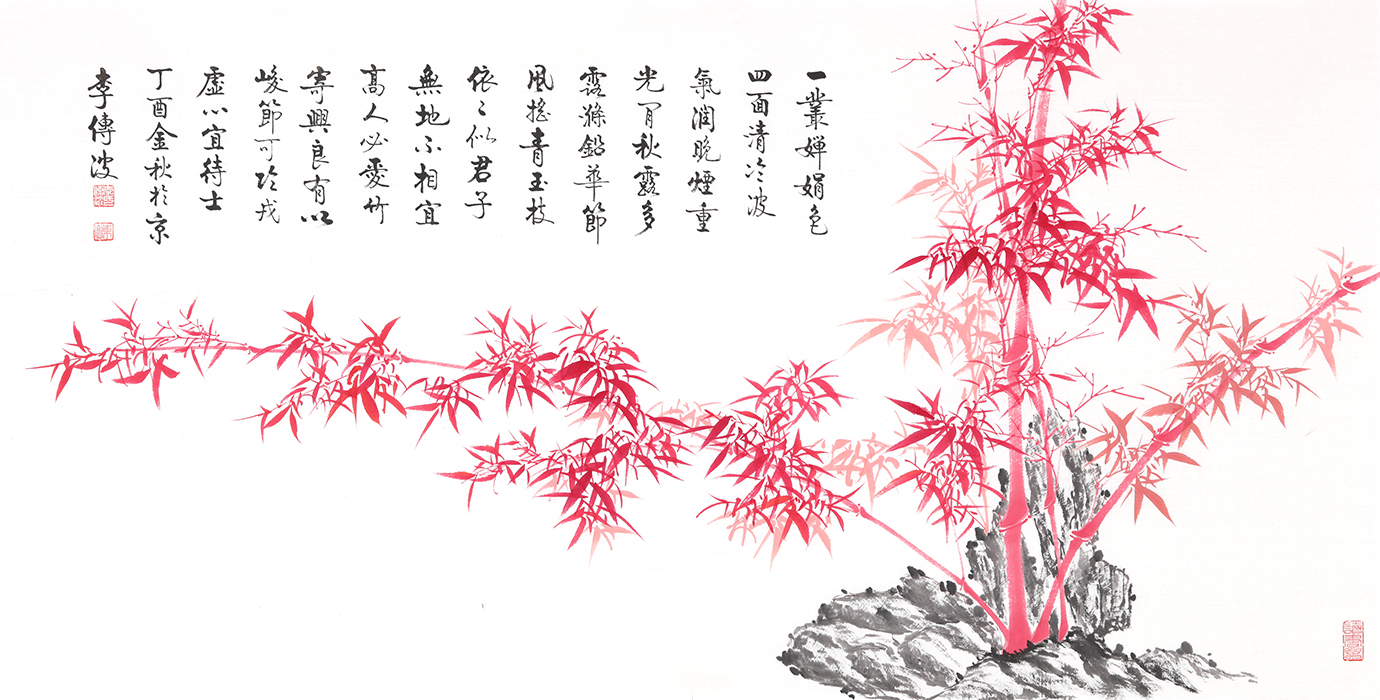 一叢嬋娟色
四面清泠波
氣潤晚煙重
光閒秋露多
露滌鉛華節
風搖青玉枝
依〻似君子
無地不相宜
高人必愛竹
寄興良有以
峻節可臨戎
虛心宜待士
丁酉金秋於京
李傳波